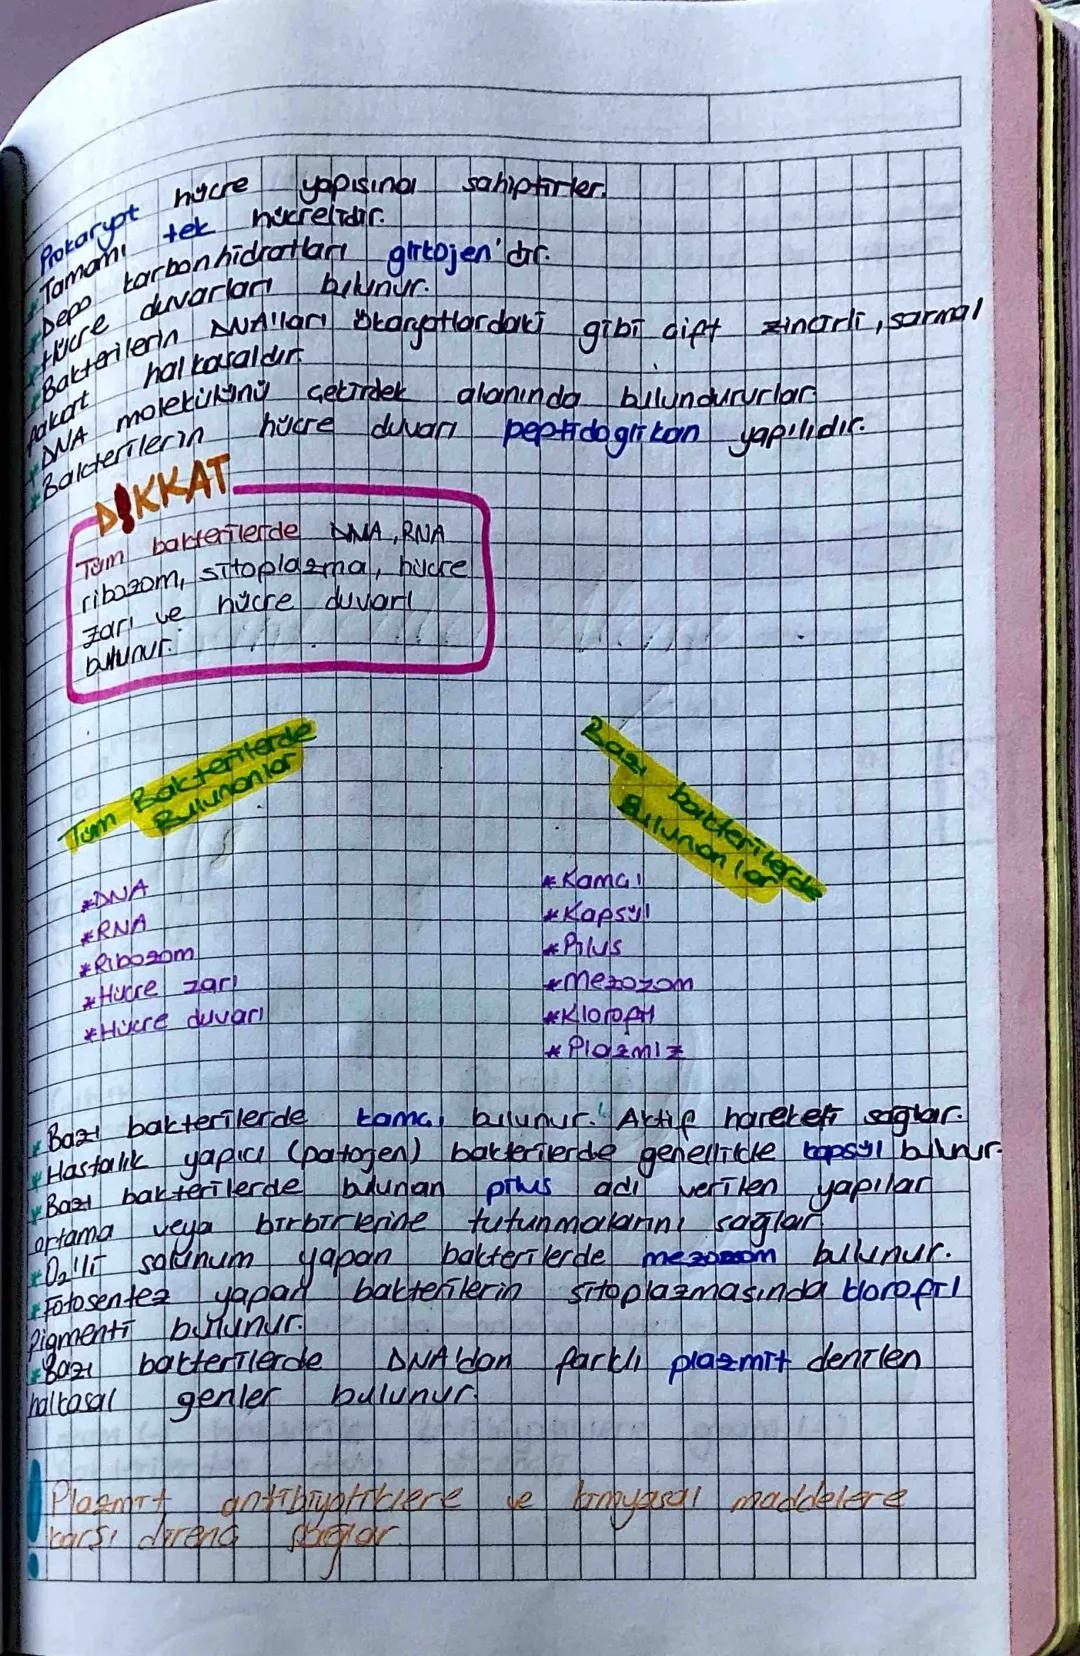 Prokaryot hücre yapısına sahiptirler.
* Tamamı tek hücrelidir.
* Depo karbonhidratları glikojen'dir.
* Hücre duvarları bulunur.
* Bakterilerin DNA'ları ökaryotlardaki gibi çift zincirli, sarmal
fakat halkasaldır.
* DNA molekülünü çekirdek alanında bulundururlar.
* Bakterilerin hücre duvarı peptidoglikan yapılıdır.
DİKKAT
Tüm bakterilerde DNA, RNA
ribozom, sitoplazma, hücre
zarı ve hücre duvarı
bulunur.
Tüm Bakterilerde
Bulunanlar
* DNA
* RNA
* Ribozom
* Hücre zarı
* Hücre duvarı
Bazı bakterilerde
Bulunanlar
* Kamçı
* Kapsül
* Pilus
* Mezozom
* Klorofil
* Plazmiz
* Bazı bakterilerde kamçı bulunur. Aktif hareketi sağlar.
* Hastalık yapıcı (patojen) bakterilerde genellikle kapsül bulunur.
* Bazı bakterilerde bulunan pilus adı verilen yapılar
ortama veya birbirlerine tutunmalarını sağlar
* O₂'li solunum yapan bakterilerde mezozom bulunur.
* Fotosentez yapan bakterilerin sitoplazmasında klorofil
pigmenti bulunur.
* Bazı bakterilerde DNA'dan farklı plazmit denilen
halkasal genler bulunur.
! Plazmit antibiyotiklere ve kimyasal maddelere
karşı direnç sağlar.